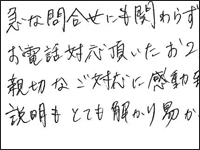 急な問合せにも関わらず
お電話対応頂いたお2
親切なご対応に感動
説明もとても解かり易か